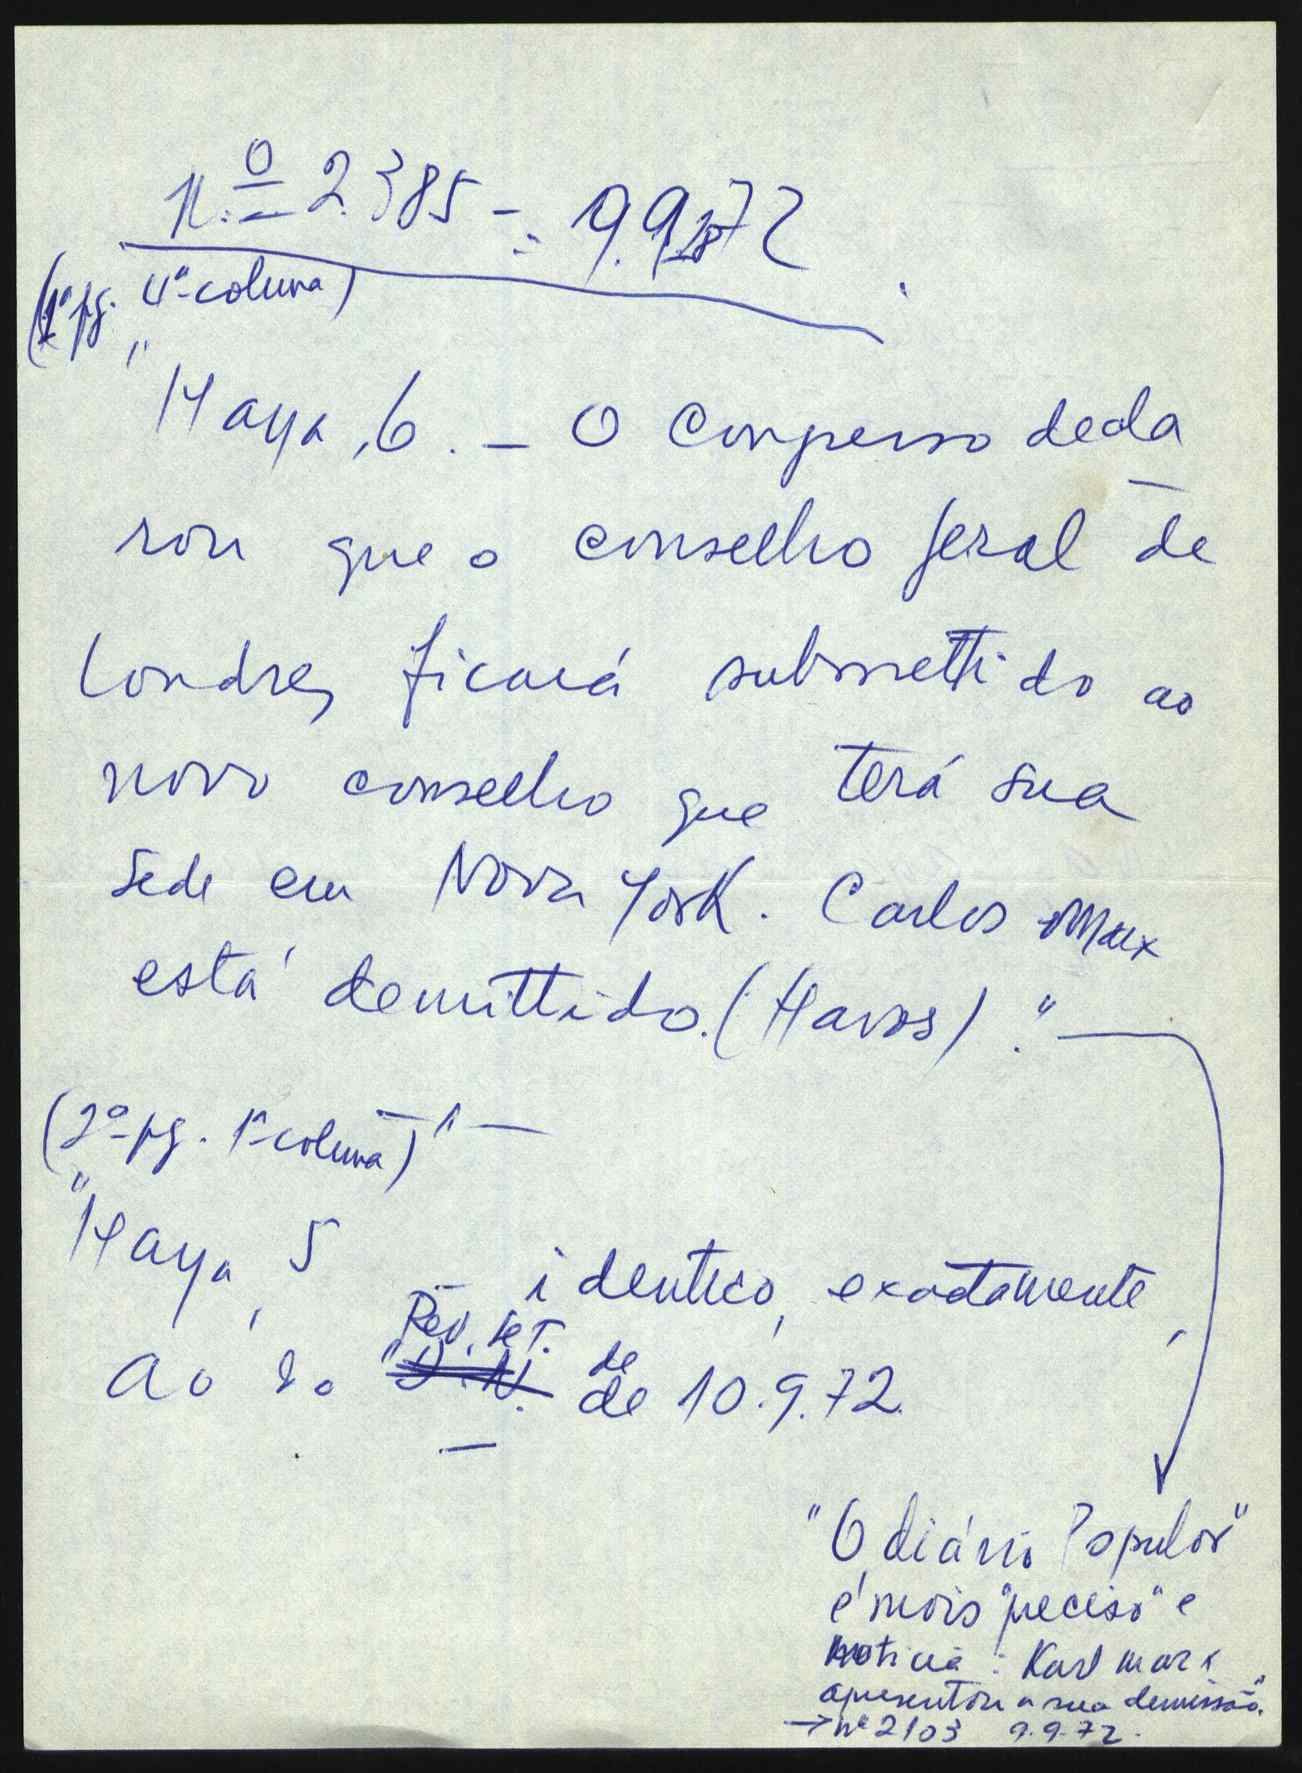 n.º 2.385 - 9.9.1872
(1ª pg. 4ª coluna)
"Haya, 6. - O Congresso decla
rou que o conselho geral de
Londres ficará submettido ao
novo conselho que terá sua
sede em Nova York. Carlos Marx
está demittido. (Havas)."
(2ª pg. 1ª coluna)
"Haya, 5
identico, exactamente,
ao do Rev. Set.
de 10.9.72.
"O diário Popular"
é mais "preciso" e
noticia: Karl Marx
apresentou a sua demissão."
→ nº 2103 9.9.72.